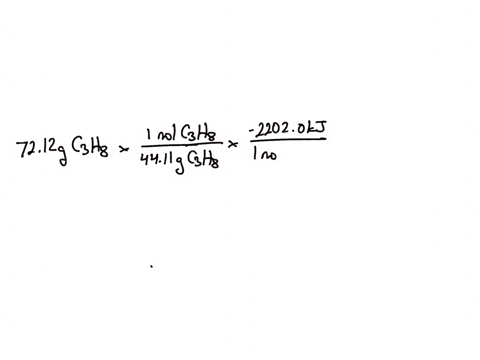 72.12g C3H8 × 1 mol C3H8 / 44.11g C3H8 × -2202.0kJ / 1 mo